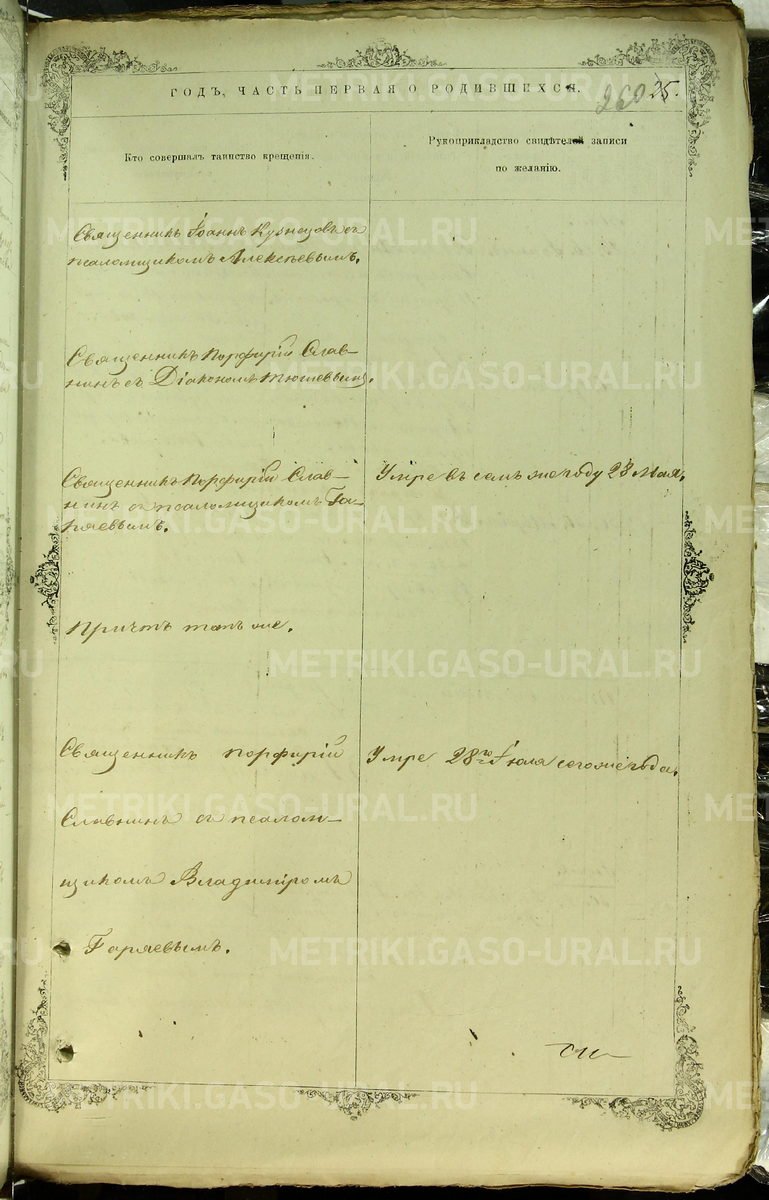 ГОДЪ, ЧАСТЬ ПЕРВАЯ О РОДИВШИХСЯ.
260 25.
Кто совершалъ таинство крещенія.
Рукоприкладство свидѣтелей записи
по желанію.
Священникъ Іоаннъ Кузнецовъ съ
псаломщикомъ Алексѣевымъ.
Священникъ Порфирій Слав-
нинъ съ Діакономъ Тюшевымъ.
Священникъ Порфирій Слав-
нинъ съ псаломщикомъ Га-
ряевымъ.
Умре въ семъ же году 28 Мая.
Причтъ тотъ же.
Священникъ Порфирій
Славнинъ съ псалом-
щикомъ Владиміромъ
Гаряевымъ.
Умре 28го Іюля сего же года.
METRIKI.GASO-URAL.RU